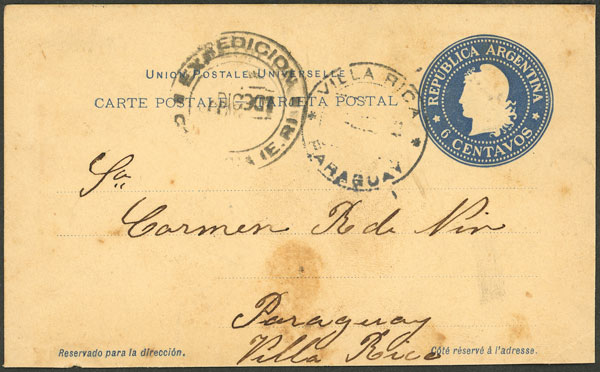 UNION POSTALE UNIVERSELLE
CARTE POSTALE TARJETA POSTAL
EXPEDICION
DIC 30
VILLA RICA
* *
PARAGUAY
REPUBLICA ARGENTINA
6 CENTAVOS
Sra
Carmen R de Nin
Paraguay
Villa Rica
Reservado para la dirección.
Côté réservé à l'adresse.